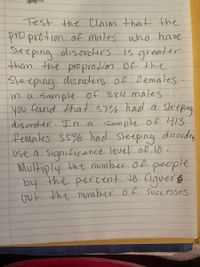 Test the Claim that the
proprotion of males who have
Sleeping disorders is greater
than the proprotion of the
Sleeping disorders of females
in a sample of 384 males
you found that 37% had a Sleeping
disorder. In a sample of 413
females 35% had Sleeping disorders
use a significance level of .10.
Multiply the number of people
by the percent to figure
out the number of Successes.